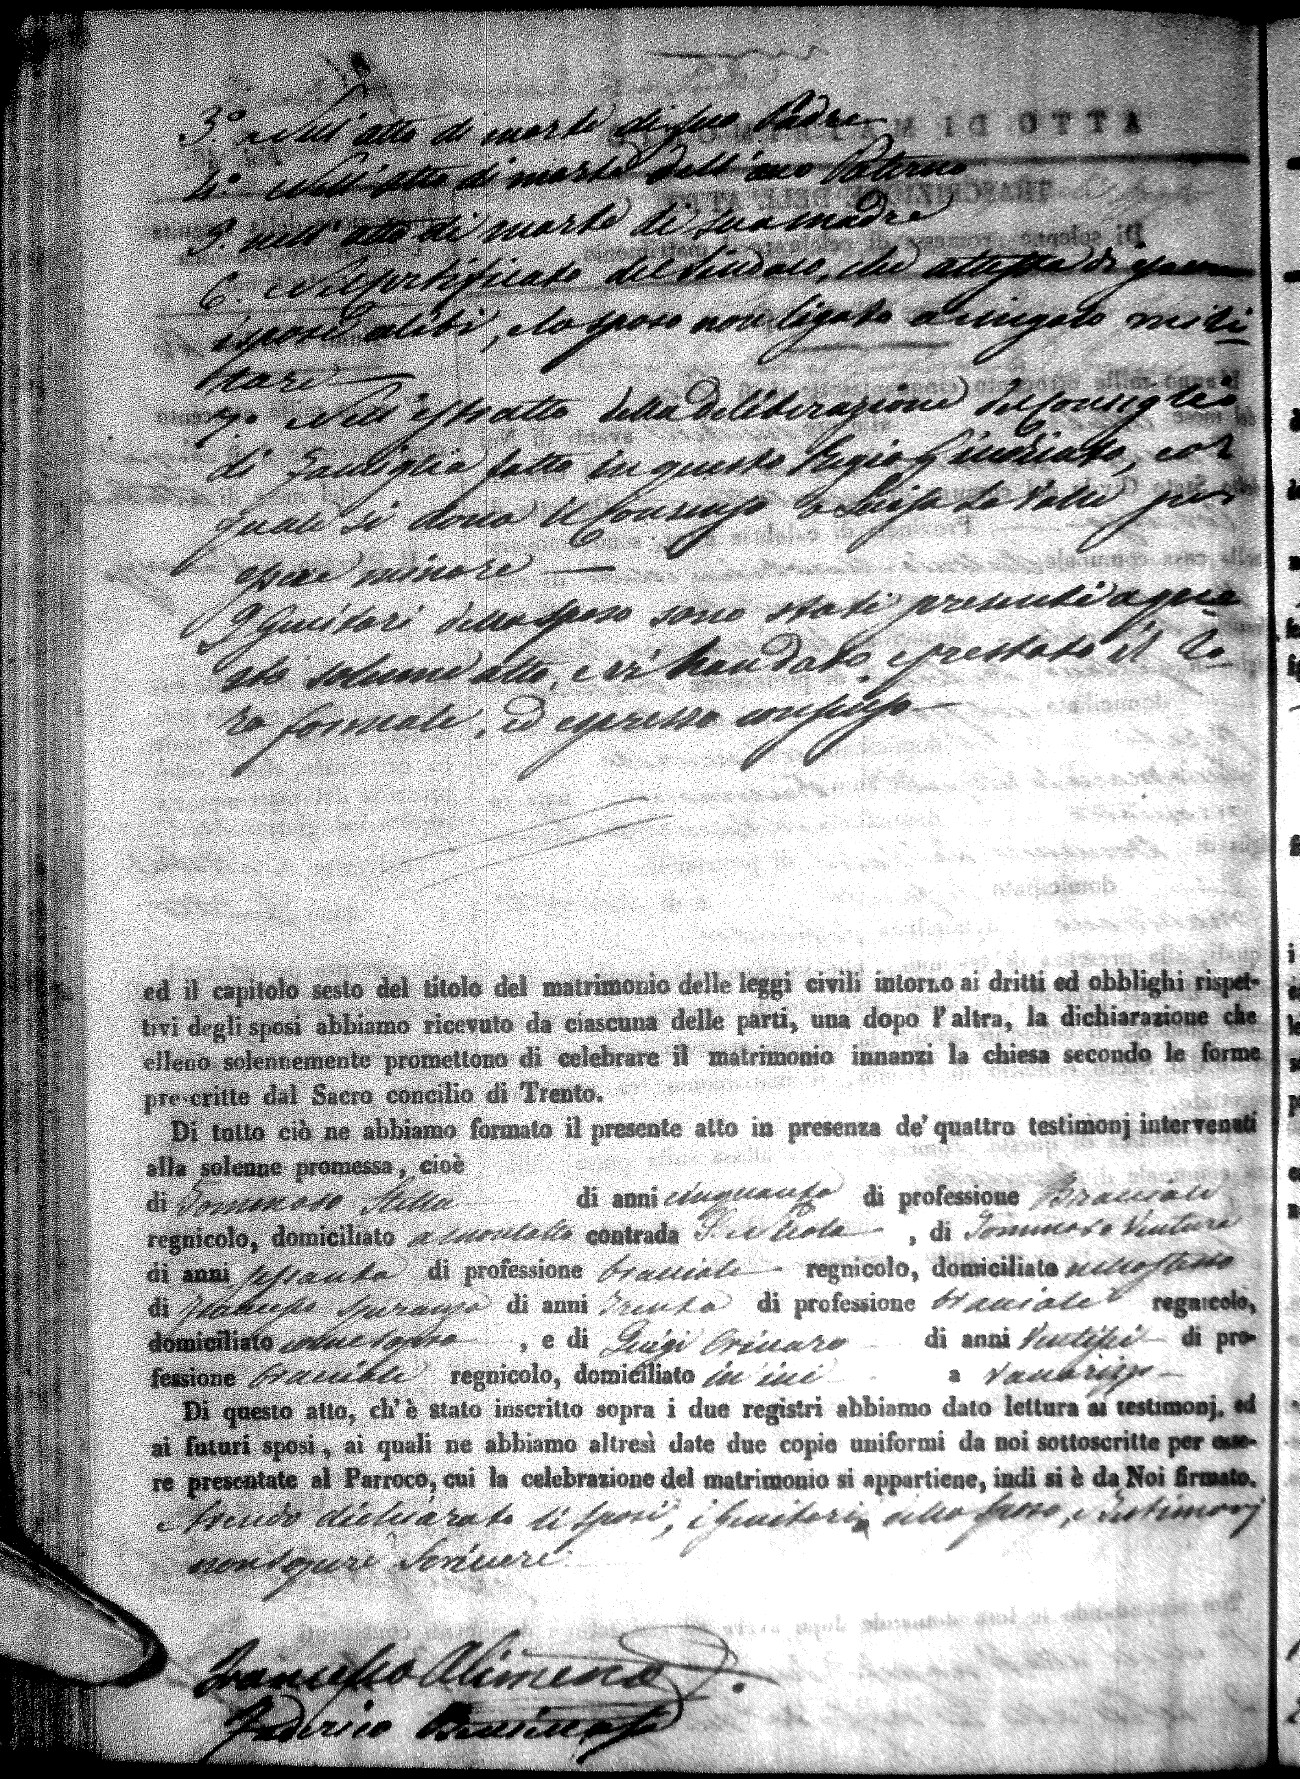 3.° Nell'atto di morte di suo Padre
4.° Nell'atto di morte dell'avo Paterno
5. nell'atto di morte di sua madre
6. Nel certificato del Sindaco, che attesta di essere
i sposi celibi, e lo sposo non ligato a vingolo mili
tare
7.° Nell'estratto della deliberazione del Consiglio
di Famiglia fatto in questo Regio Giudicato, col
quale si dona il consenso a Luisa La Valle per
essere minore
I Genitori dello sposo sono stati presenti a que
sto solenne atto, e vi han dato, e prestato il lo
ro formale, ed espresso consenso
ed il capitolo sesto del titolo del matrimonio delle leggi civili intorno ai dritti ed obblighi rispet-
tivi degli sposi abbiamo ricevuto da ciascuna delle parti, una dopo l'altra, la dichiarazione che
elleno solennemente promettono di celebrare il matrimonio innanzi la chiesa secondo le forme
prescritte dal Sacro concilio di Trento.
Di tutto ciò ne abbiamo formato il presente atto in presenza de' quattro testimonj intervenuti
alla solenne promessa, cioè
di Tommaso Stella di anni cinquanta di professione Bracciale
regnicolo, domiciliato a Montalto contrada , di Tommaso Ventura
di anni sessanta di professione bracciale regnicolo, domiciliato
di Francesco Speranza di anni Trenta di professione bracciale regnicolo,
domiciliato come sopra , e di Luigi Crivaro di anni Ventisei di pro-
fessione bracciale regnicolo, domiciliato in ivi a
Di questo atto, ch'è stato inscritto sopra i due registri abbiamo dato lettura ai testimonj, ed
ai futuri sposi, ai quali ne abbiamo altresì date due copie uniformi da noi sottoscritte per esse-
re presentate al Parroco, cui la celebrazione del matrimonio si appartiene, indi si è da Noi firmato.
avendo dichiarato li sposi, i genitori dello sposo, e testimonj
non sapere scrivere
Francesco Alimena
Federico